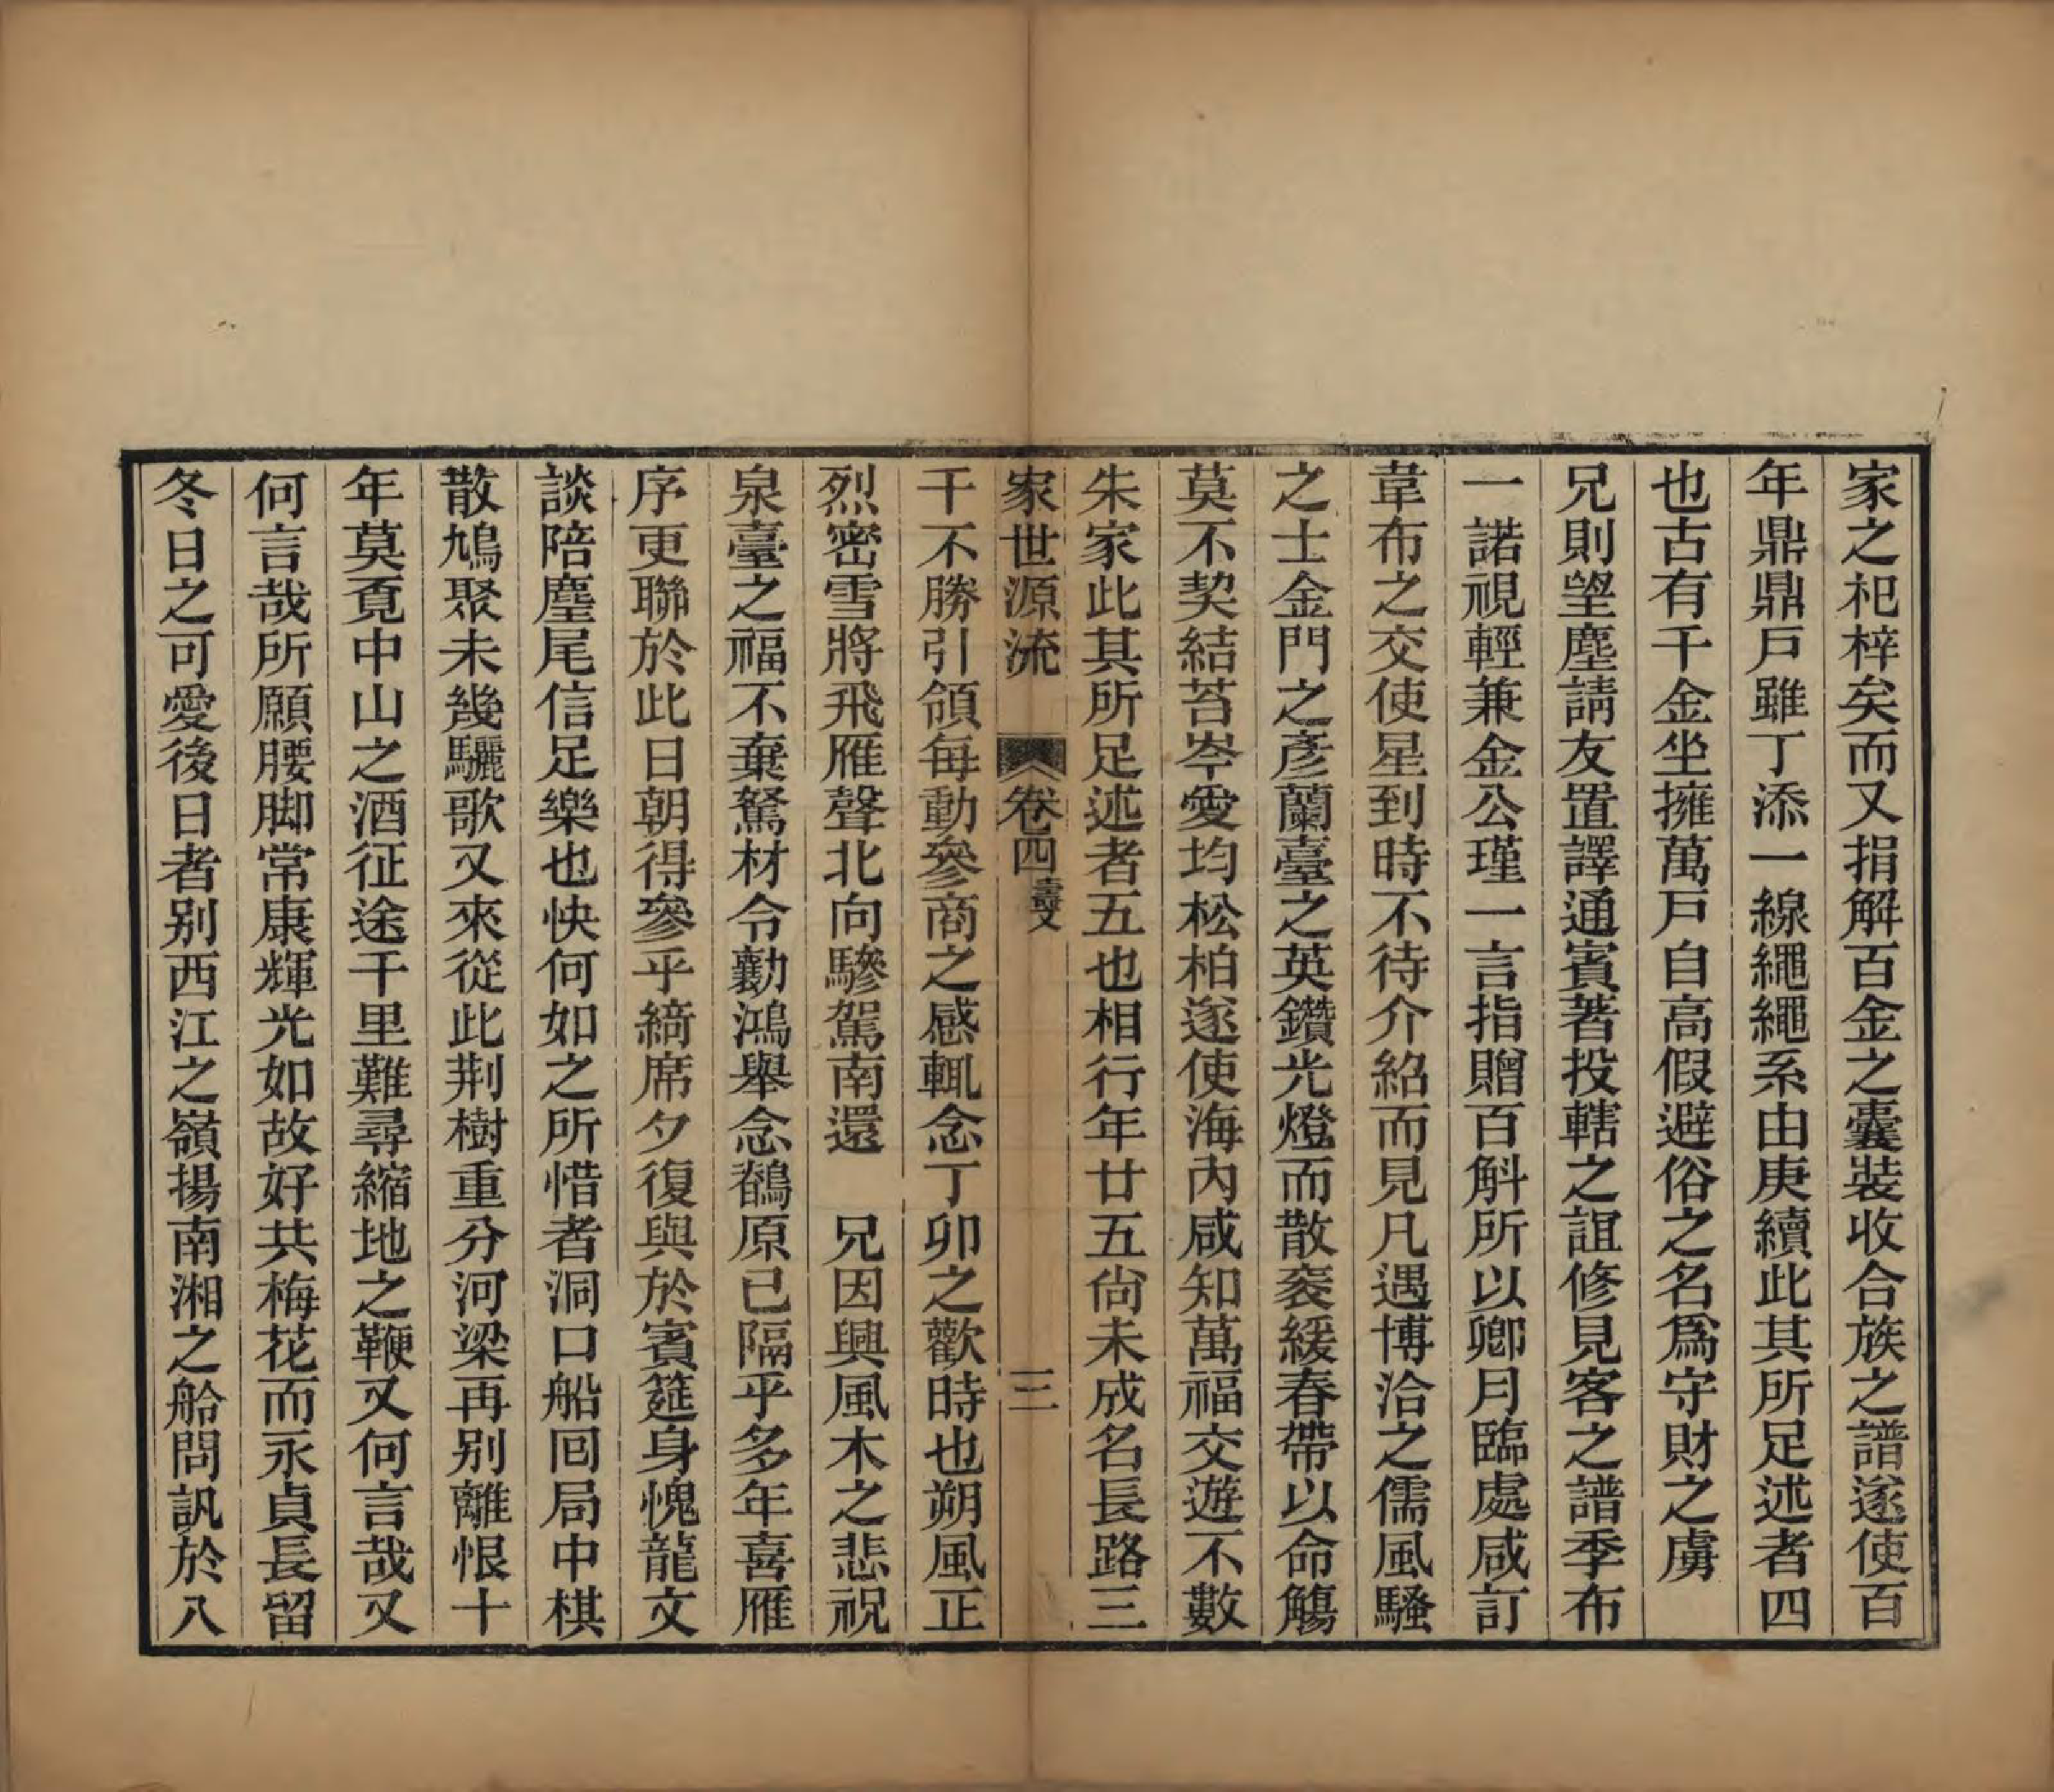 家之杞梓矣而又捐解百金之囊裝收合族之譜遂使百
年鼎鼎戸雖丁添一線繩繩系由庚續此其所足述者四
也古有千金坐擁萬戸自高假避俗之名爲守財之虜
兄則望塵請友置譯通賓著投轄之誼修見客之譜季布
一諾視輕兼金公瑾一言指贈百斛所以卿月臨處咸訂
韋布之交使星到時不待介紹而見凡遇博洽之儒風騷
之士金門之彥蘭臺之英鑽光燈而散裘緩春帶以命觴
莫不契結苔岑愛均松柏遂使海內咸知萬福交遊不數
朱家此其所足述者五也相行年廿五尙未成名長路三
家世源流 卷四壽文 三
千不勝引領每動參商之感輒念丁卯之歡時也朔風正
烈密雪將飛雁聲北向驂駕南還 兄因興風木之悲祝
泉臺之福不棄駑材令勷鴻舉念鶺原已隔乎多年喜雁
序更聯於此日朝得參乎綺席夕復與於賓筵身愧龍文
談陪麈尾信足樂也快何如之所惜者洞口船囘局中棋
散鳩聚未幾驪歌又來從此荆樹重分河梁再别離恨十
年莫覔中山之酒征途千里難尋縮地之鞭又何言哉又
何言哉所願腰脚常康輝光如故好共梅花而永貞長留
冬日之可愛後日者别西江之嶺揚南湘之船問訊於八